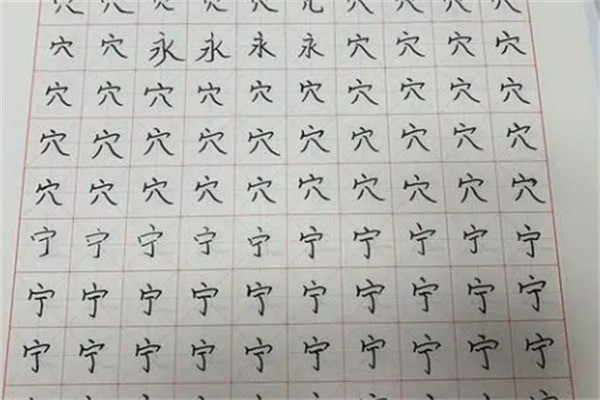 穴穴永永永永穴穴穴穴
穴穴穴穴穴穴穴穴穴穴
穴穴穴穴穴穴穴穴穴穴
穴穴穴穴穴穴穴穴穴穴
宁宁宁宁宁宁宁宁宁宁
宁宁宁宁宁宁宁宁宁宁
宁宁宁宁宁宁宁宁宁宁